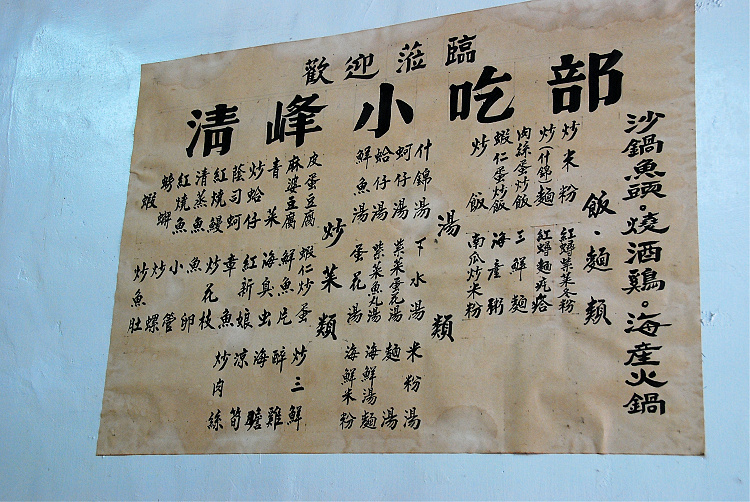 歡迎蒞臨
清峰小吃部
沙鍋魚頭。燒酒鷄。海產火鍋
飯.麵類
炒米粉 紅蟳紫菜冬粉
炒(什錦)麵 紅蟳麵疙瘩
肉絲蛋炒飯 三鮮麵
蝦仁蛋炒飯 海產粥
炒飯 南瓜炒米粉
湯類
什錦湯 下水湯 米粉湯
蚵仔湯 紫菜蛋花湯 麵湯
蛤仔湯 紫菜魚丸湯 海鮮湯麵
鮮魚湯 蛋花湯 海鮮米粉
炒菜類
皮蛋豆腐 蝦仁炒蛋 炒三鮮
麻婆豆腐 鮮魚片 醉雞
青菜 海臭虫 海膽
炒蛤仔 紅新娘 涼筍
蔭司蚵 章魚 炒肉絲
紅燒鰻 炒花枝
清蒸魚 魚卵
紅燒魚 小管
螃蠏 炒螺
蝦 炒魚肚